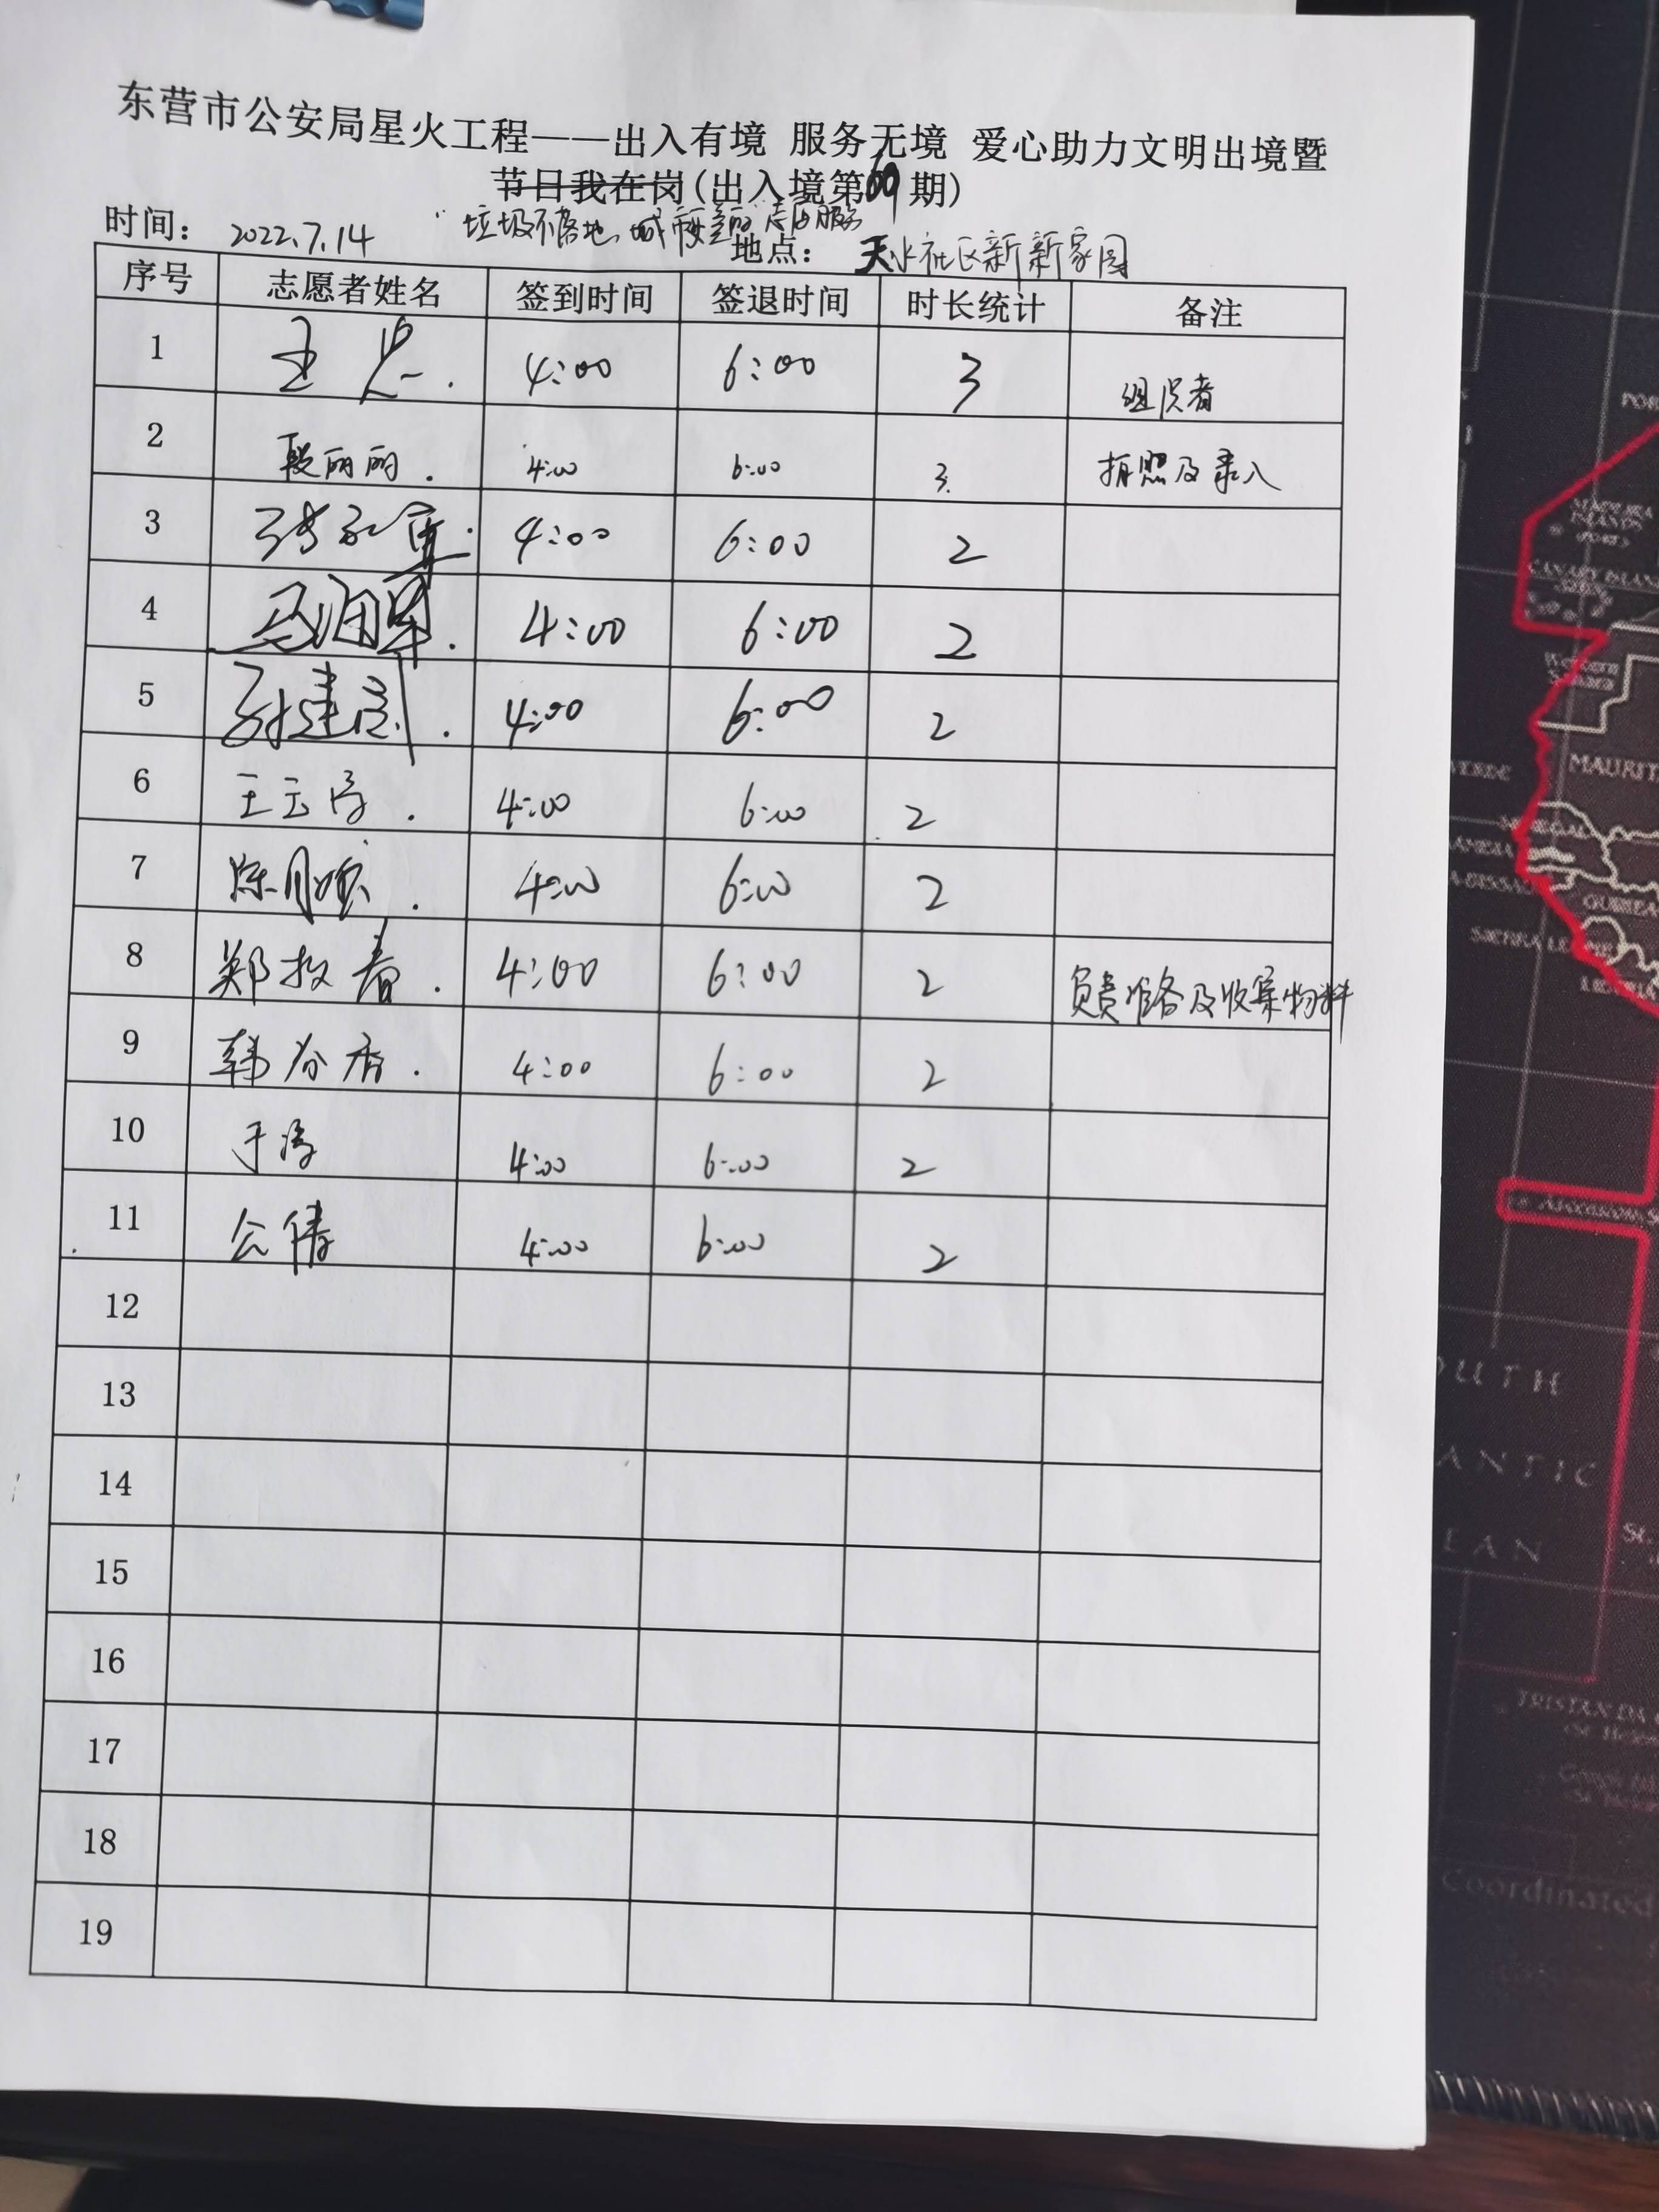 东营市公安局星火工程——出入有境 服务无境 爱心助力文明出境暨
节日我在岗(出入境第69期)
"垃圾不落地、城市更美丽"志愿服务
时间： 2022.7.14 地点： 天水社区新新家园
序号 志愿者姓名 签到时间 签退时间 时长统计 备注
1 王 4:00 6:00 3 组织者
2 段丽丽. 4:00 6:00 3. 拍照及录入
3 4:00 6:00 2
4 4:00 6:00 2
5 孙建 4:00 6:00 2
6 王云涛. 4:00 6:00 2
7 陈月 4:00 6:00 2
8 郑教春. 4:00 6:00 2 负责准备及收集物料
9 韩 4:00 6:00 2
10 于涛 4:00 6:00 2
11 公倩 4:00 6:00 2
12
13
14
15
16
17
18
19
MAURIT
GUINEA
OUTH
ANTIC
EAN
TRISTAN DA
Coordinated